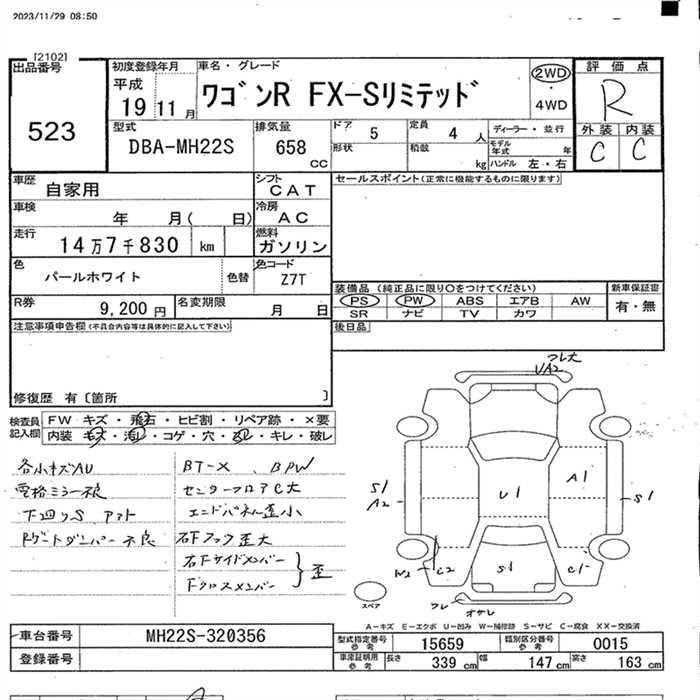 2023/11/29 08:50
[2102]
出品番号
523
初度登録年月
平成
19 11 月
車名・グレード
ワゴンR FX-Sリミテッド
2WD
・
4WD
評価点
R
外装 内装
C C
型式
DBA-MH22S
排気量
658 CC
ドア 5
定員 4 人
形状
積載 kg
ディーラー・並行
モデル年式 年
ハンドル 左・右
車歴
自家用
シフト
CAT
車検
年 月( 日)
冷房
AC
走行
14万7千830 km
燃料
ガソリン
色
パールホワイト
色替
色コード
Z7T
R券
9,200 円
名変期限
月 日
セールスポイント(正常に機能するものに限ります)
装備品 (純正品に限り○をつけてください)
PS PW ABS エアB AW
SR ナビ TV カワ
新車保証書
有・無
後日品
注意事項申告欄(不具合内容等は具体的に記入して下さい)
修復歴 有〔箇所 〕
検査員記入欄
FW キズ・飛石・ヒビ割・リペア跡・×要
内装 キズ・汚れ・コゲ・穴・ネレ・キレ・破レ
各小キズAU
電格ミラー不良
下廻りS アマト
Rゲートダンパー不良
BT-X 、BPW
センターフロアC大
エンドパネル歪小
右下フック歪大
右下サイドメンバー
下クロスメンバー
歪
フレ大
UA2
S1
A2
U1
A1
S1
W2
C2
S1
C1
フレ
オサレ
スペア
A-キズ E-エクボ U-凹み W-補修跡 S-サビ C-腐食 XX-交換済
車台番号
MH22S-320356
登録番号
型式指定番号
参考
15659
類別区分番号
参考
0015
車庫証明用
参考
長さ 339 cm
幅 147 cm
高さ 163 cm